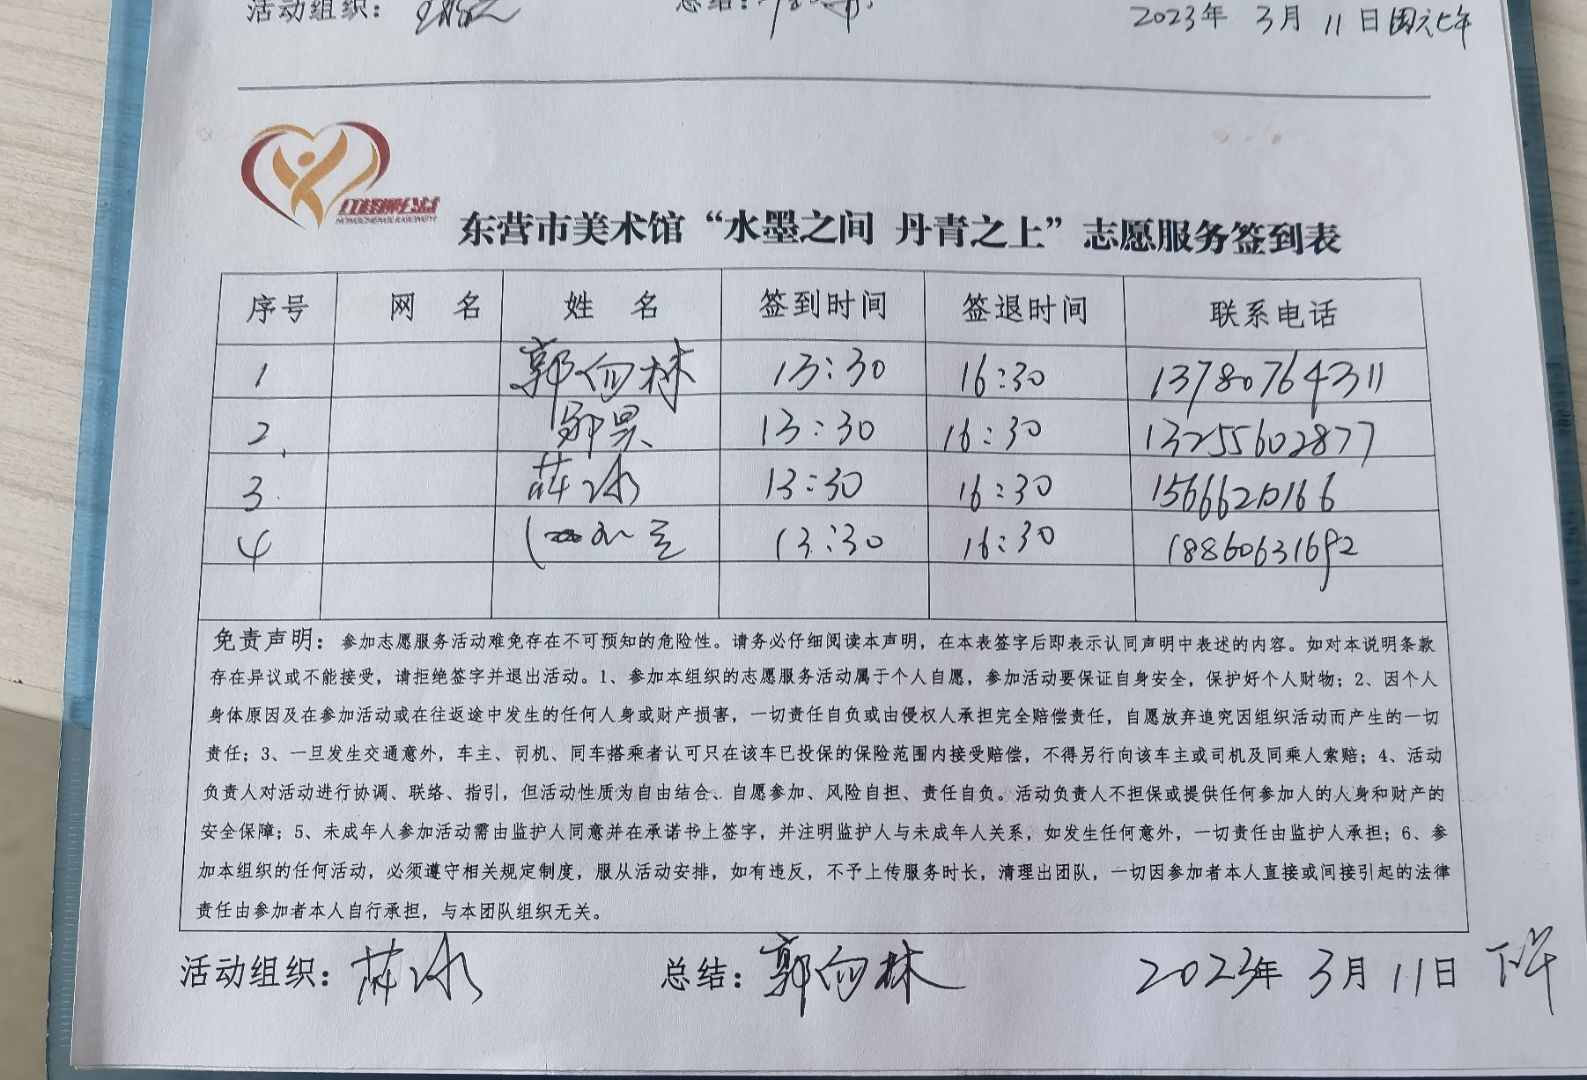 活动组织： 总结：
2023年 3月 11日周六上午
东营市美术馆“水墨之间 丹青之上”志愿服务签到表
序号 网 名 姓 名 签到时间 签退时间 联系电话
1 郭向林 13:30 16:30 13780764311
2. 邹昊 13:30 16:30 13255602877
3. 薛冰 13:30 16:30 15666210166
4 13:30 16:30 18860631692
免责声明：参加志愿服务活动难免存在不可预知的危险性。请务必仔细阅读本声明，在本表签字后即表示认同声明中表述的内容。如对本说明条款
存在异议或不能接受，请拒绝签字并退出活动。1、参加本组织的志愿服务活动属于个人自愿，参加活动要保证自身安全，保护好个人财物；2、因个人
身体原因及在参加活动或在往返途中发生的任何人身或财产损害，一切责任自负或由侵权人承担完全赔偿责任，自愿放弃追究因组织活动而产生的一切
责任；3、一旦发生交通意外，车主、司机、同车搭乘者认可只在该车已投保的保险范围内接受赔偿，不得另行向该车主或司机及同乘人索赔；4、活动
负责人对活动进行协调、联络、指引，但活动性质为自由结合、自愿参加、风险自担、责任自负。活动负责人不担保或提供任何参加人的人身和财产的
安全保障；5、未成年人参加活动需由监护人同意并在承诺书上签字，并注明监护人与未成年人关系，如发生任何意外，一切责任由监护人承担；6、参
加本组织的任何活动，必须遵守相关规定制度，服从活动安排，如有违反，不予上传服务时长，清理出团队，一切因参加者本人直接或间接引起的法律
责任由参加者本人自行承担，与本团队组织无关。
活动组织：薛冰 总结：郭向林 2023年 3月 11日 下午